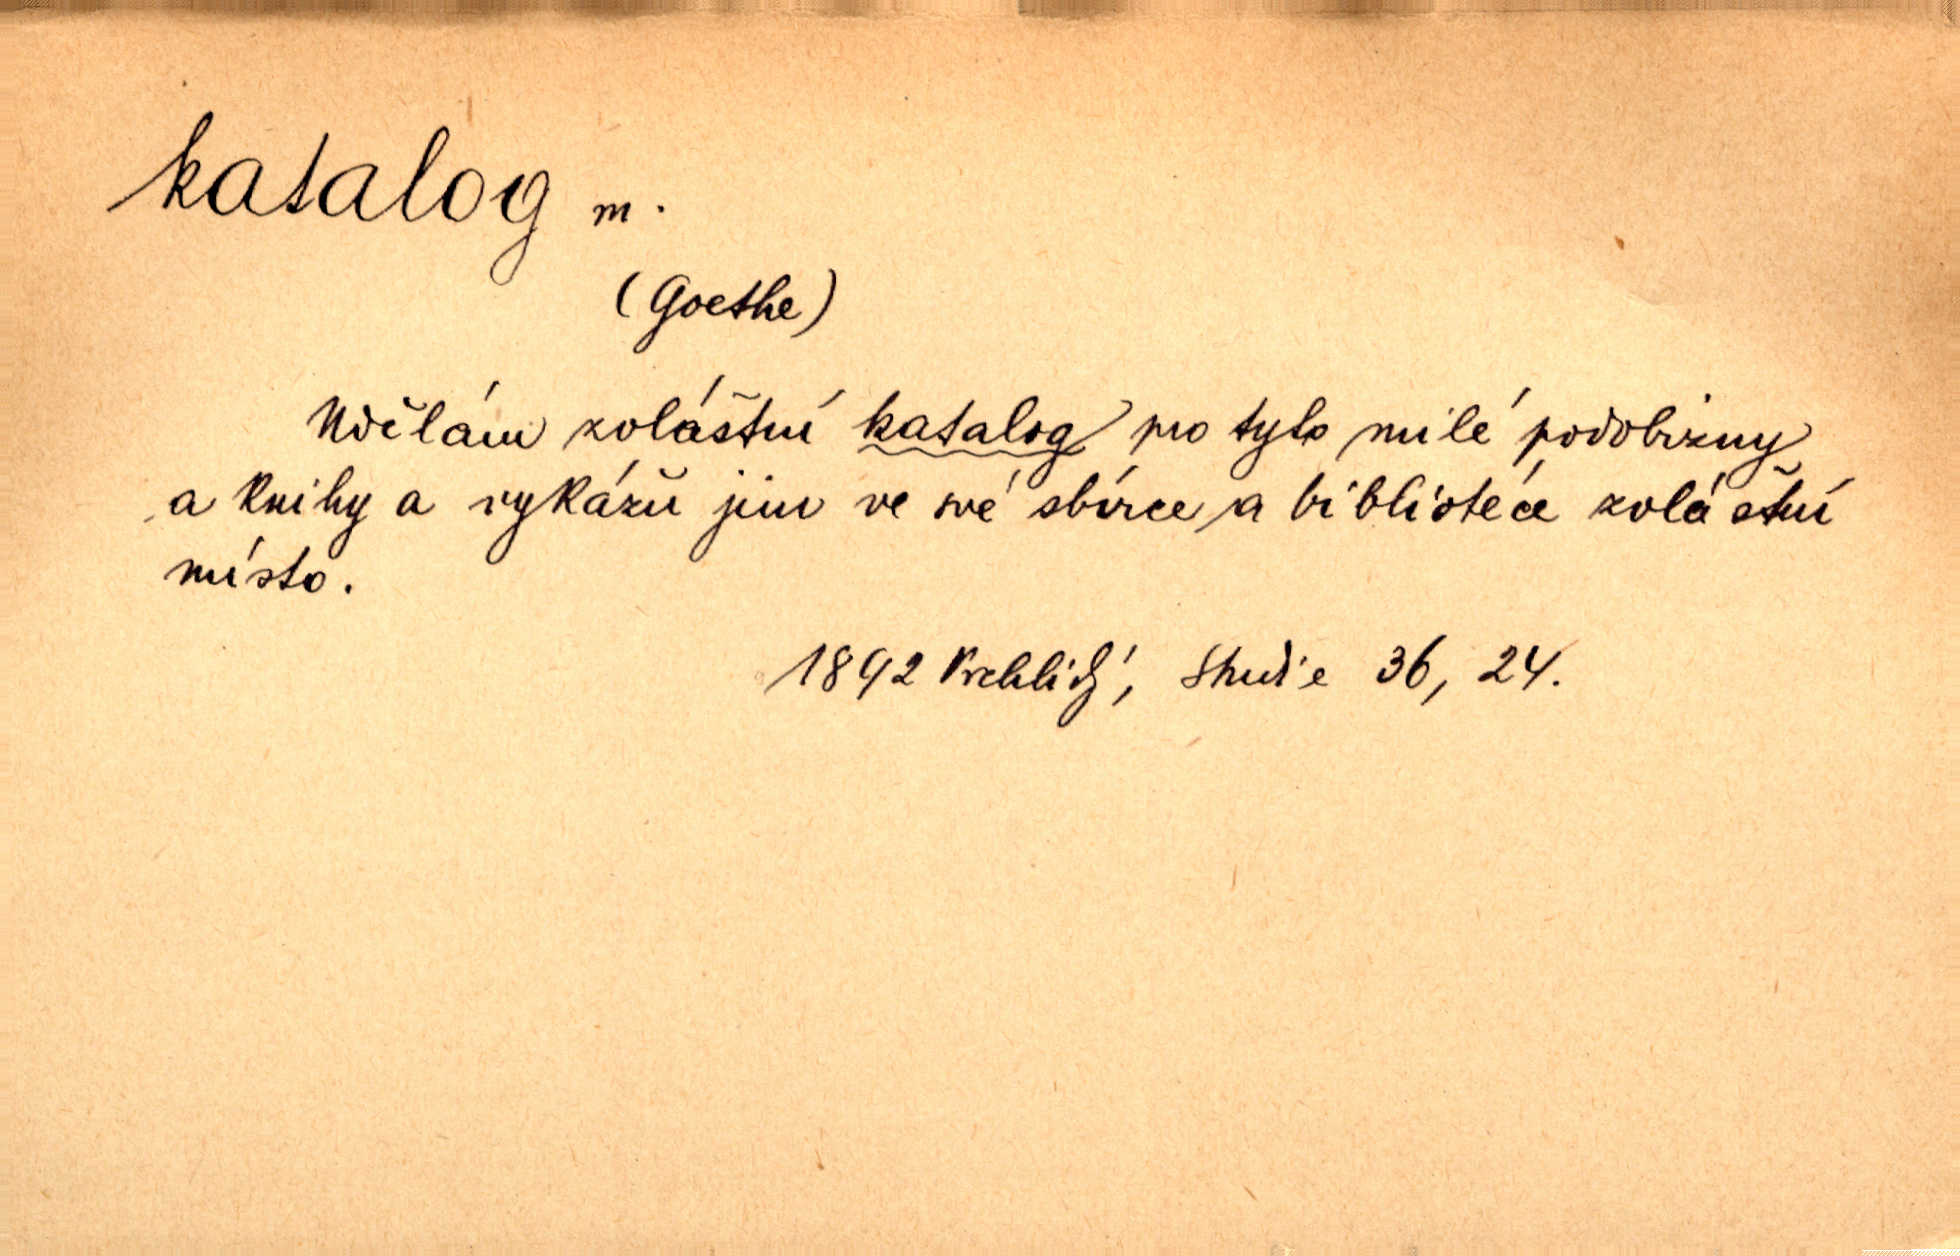 katalog m.
(Goethe)
Udělám zvláštní katalog pro tyto milé podobizny
a knihy a vykážu jim ve své sbírce a bibliotéce zvláštní
místo.
1892 Vrchlický, Studie 36, 24.